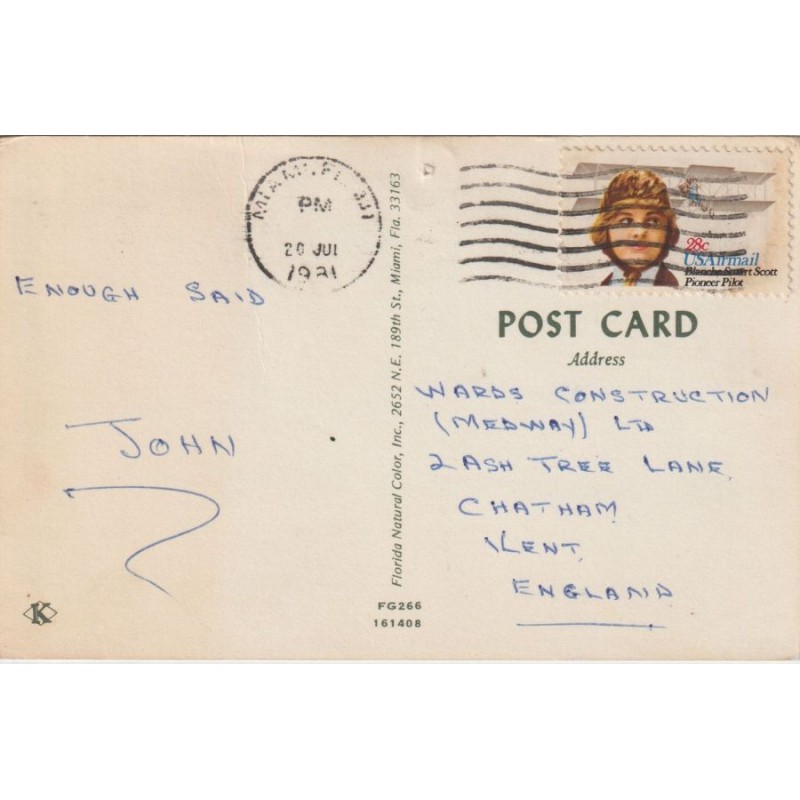 MIAMI, FL 331
PM
20 JUL
1981
28c
USAirmail
Blanche Stuart Scott
Pioneer Pilot
ENOUGH SAID
JOHN
Florida Natural Color, Inc., 2652 N.E. 189th St., Miami, Fla. 33163
POST CARD
Address
WARDS CONSTRUCTION
(MEDWAY) LTD
2 ASH TREE LANE
CHATHAM
KENT
ENGLAND
K
FG266
161408